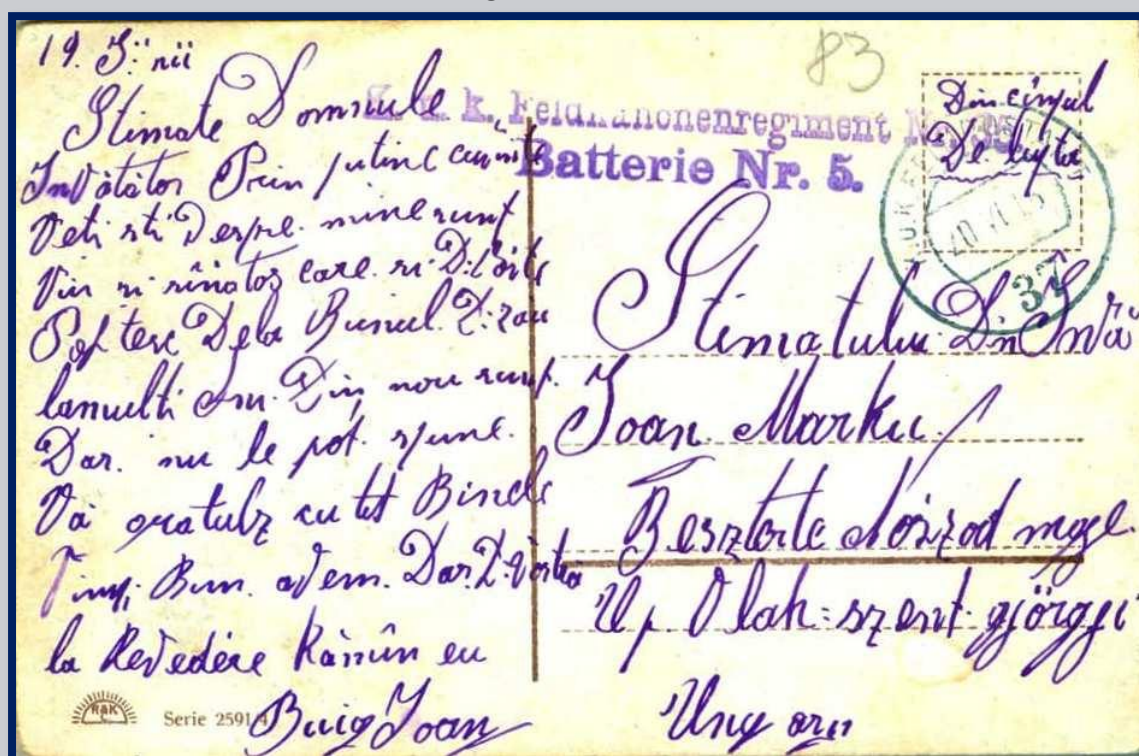 19.
Stimate Domnule
Invâtâtor Prin putine cuvinte
Veti sti Despre mine sunt
Viu si sînatos care si D: Vôstă
Poftesc Dela Bunul D: zau
lamulti Ani Din nou sunt.
Dar. nu le pot. spune.
Vă gratulz cu tot Binele
Timp: Bun. avem. Dar. D. Vostra
la Revedére Rămîn eu
Buig Ioan
83
k. Feldkanonenregiment
Batterie Nr. 5.
Din cîmpul
De luptă
37
Stimatului Dn Învă
Ioan Marku
Beszterte Nószod mge.
Up Olah: szent: györgyi
Ungaru
RAK
Serie 2591/4